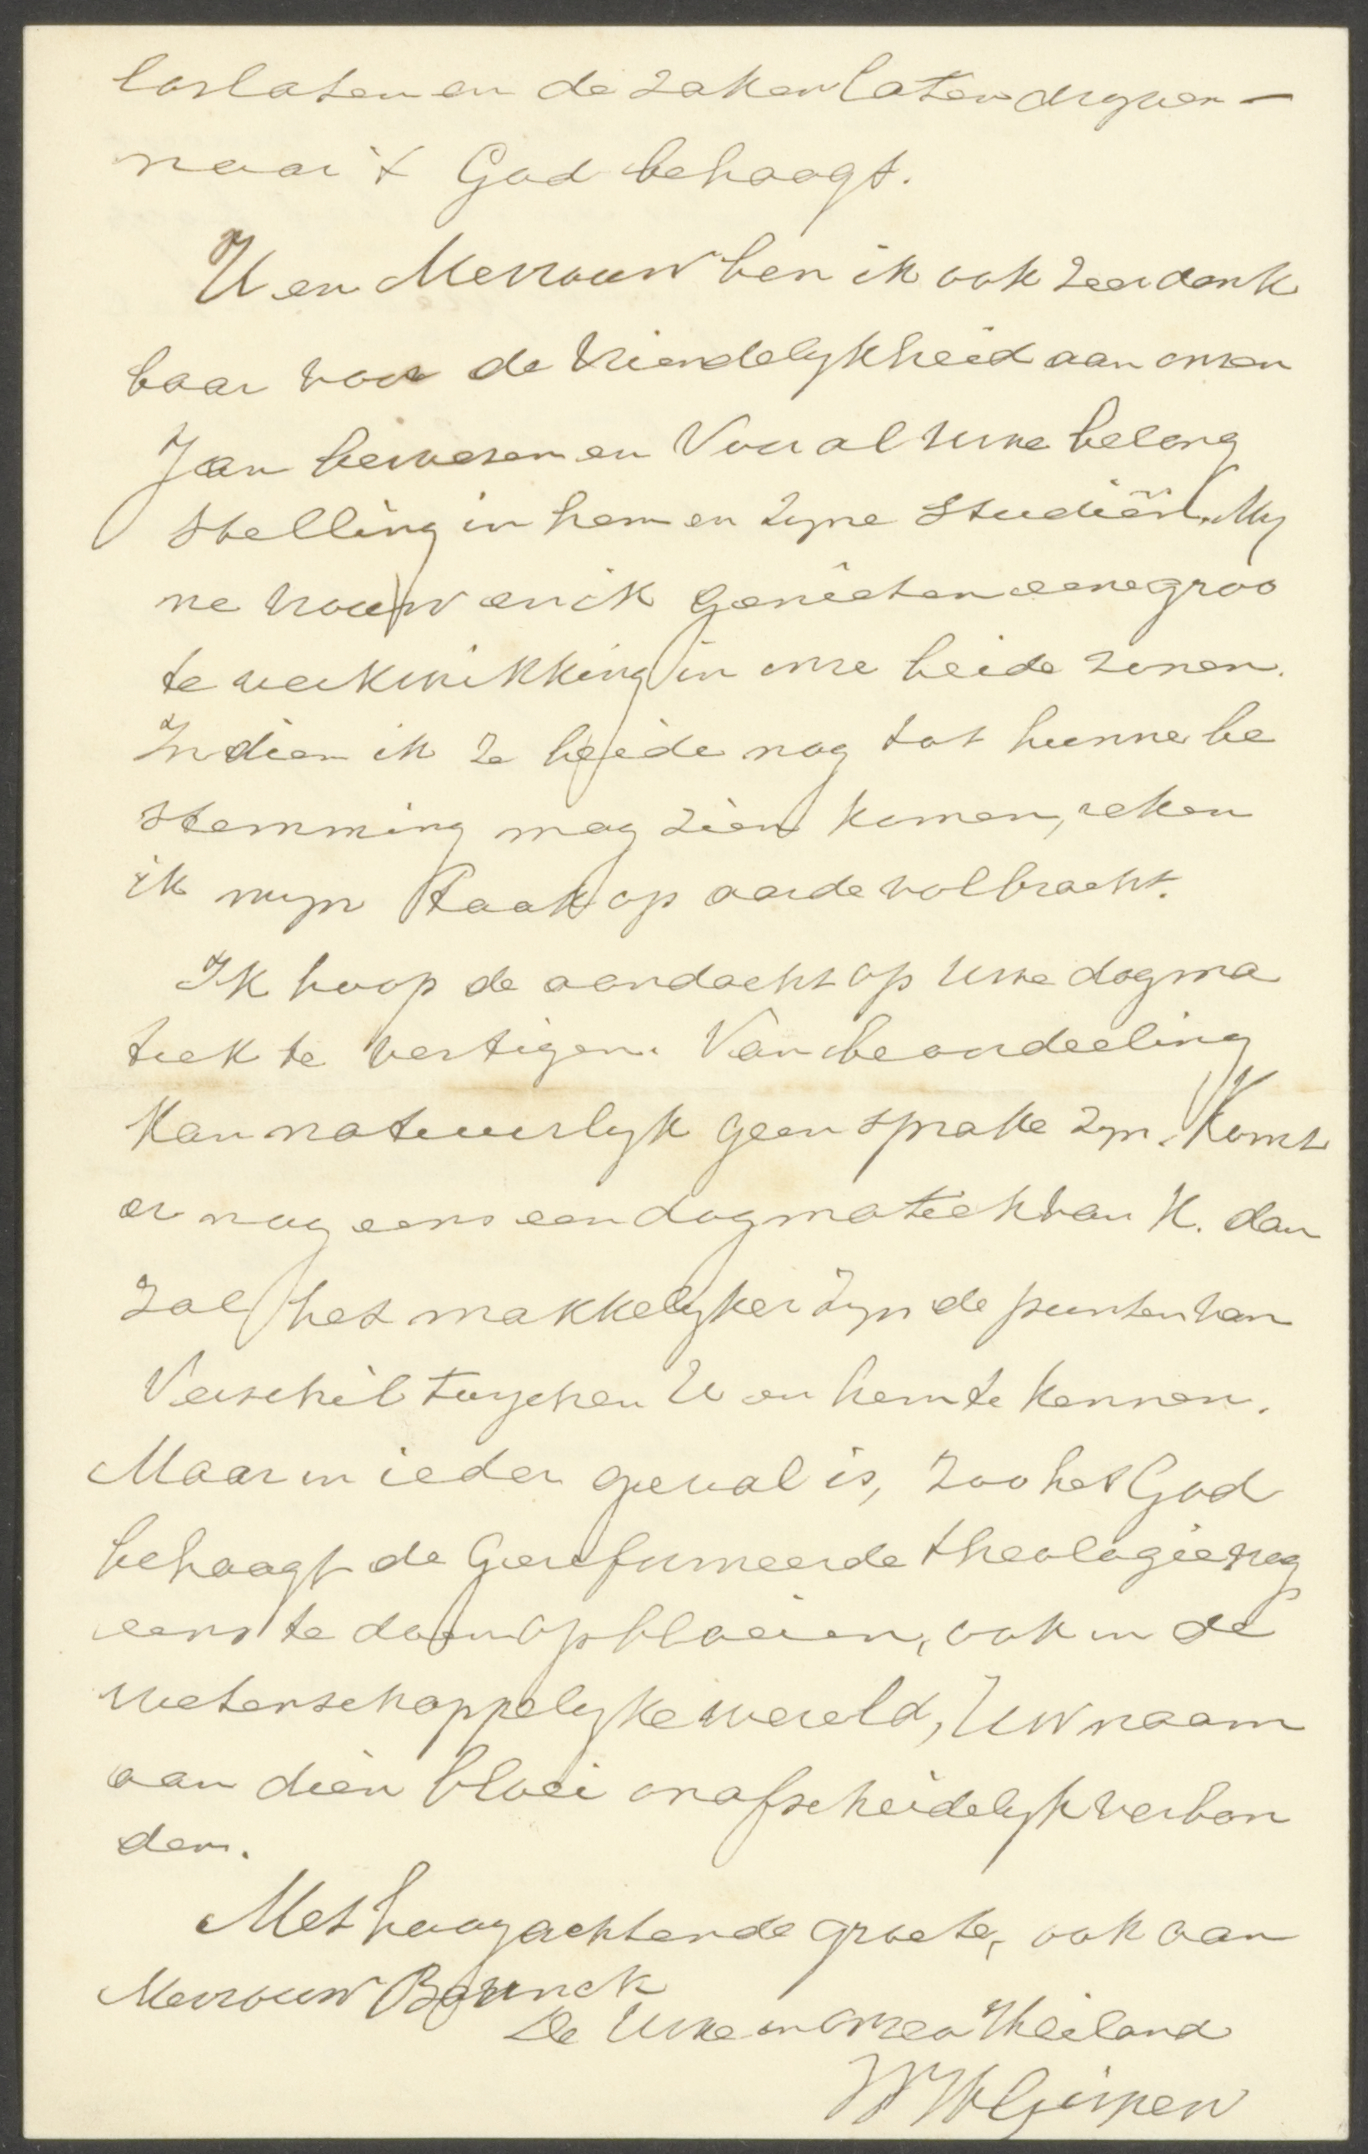 loslaten en de zaken laten drijven –
naar 't God behaagt.
U en Mevrouw ben ik ook zeer dank
baar voor de vriendelijkheid aan onzen
Jan bewezen en voor al uwe belang
stelling in hem en zijne studiën. Mij
ne vrouw en ik genieten eene groo
te verkwikking in onze beide zonen.
Indien ik ze beide nog tot hunne be
stemming mag zien komen, reken
ik mijn taak op aarde volbracht.
Ik hoop de aandacht op uwe dogma
tiek te vestigen. Van beoordeeling
kan natuurlijk geen sprake zijn. Komt
er nog eens een dogmatiek van K. dan
zal het makkelijker zijn de punten van
verschil tusschen U en hem te kennen.
Maar in ieder geval is, zoo het God
behaagt de Gereformeerde theologie nog
eens te doen opbloeien, ook in de
wetenschappelijke wereld, Uw naam
aan dien bloei onafscheidelijk verbon
den.
Met hoogachtende groete, ook aan
Mevrouw Bavinck
De Uwe in onzen Heiland
WHGispen